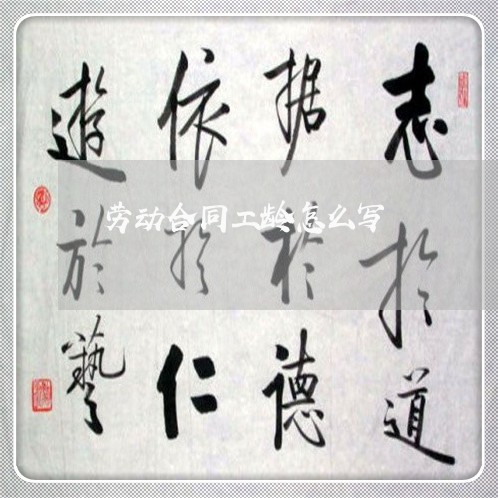 志於道
据於德
依於仁
遊於藝
劳动合同工龄怎么写